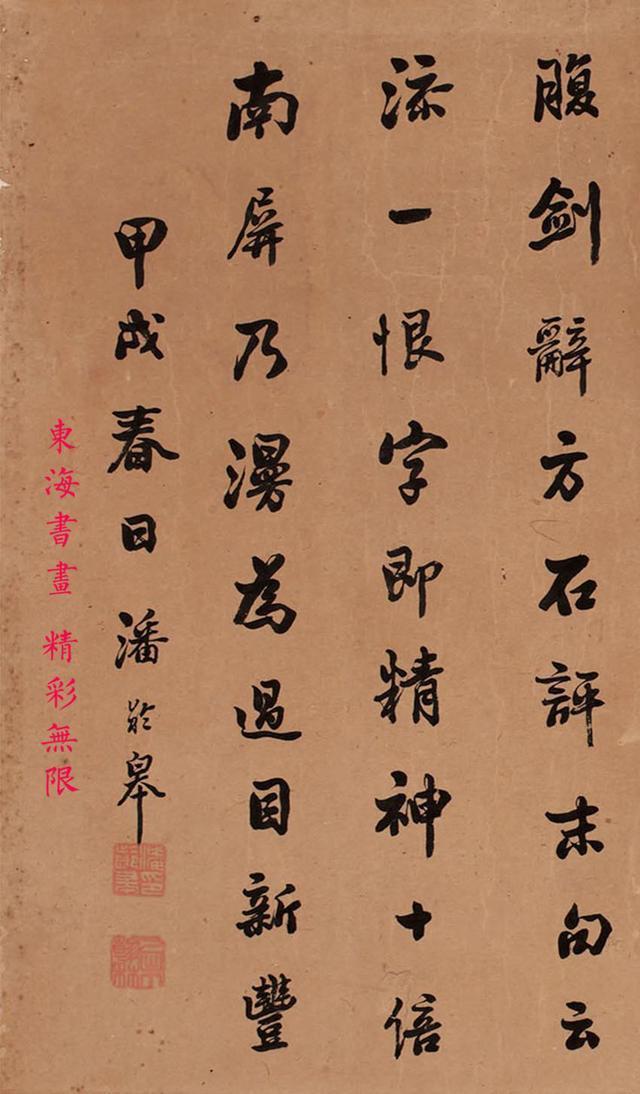 腹劍辭方石評末句云
添一恨字即精神十倍
南屏乃漫為過目新豐
甲戌春日潘齡皋
東海書畫 精彩無限